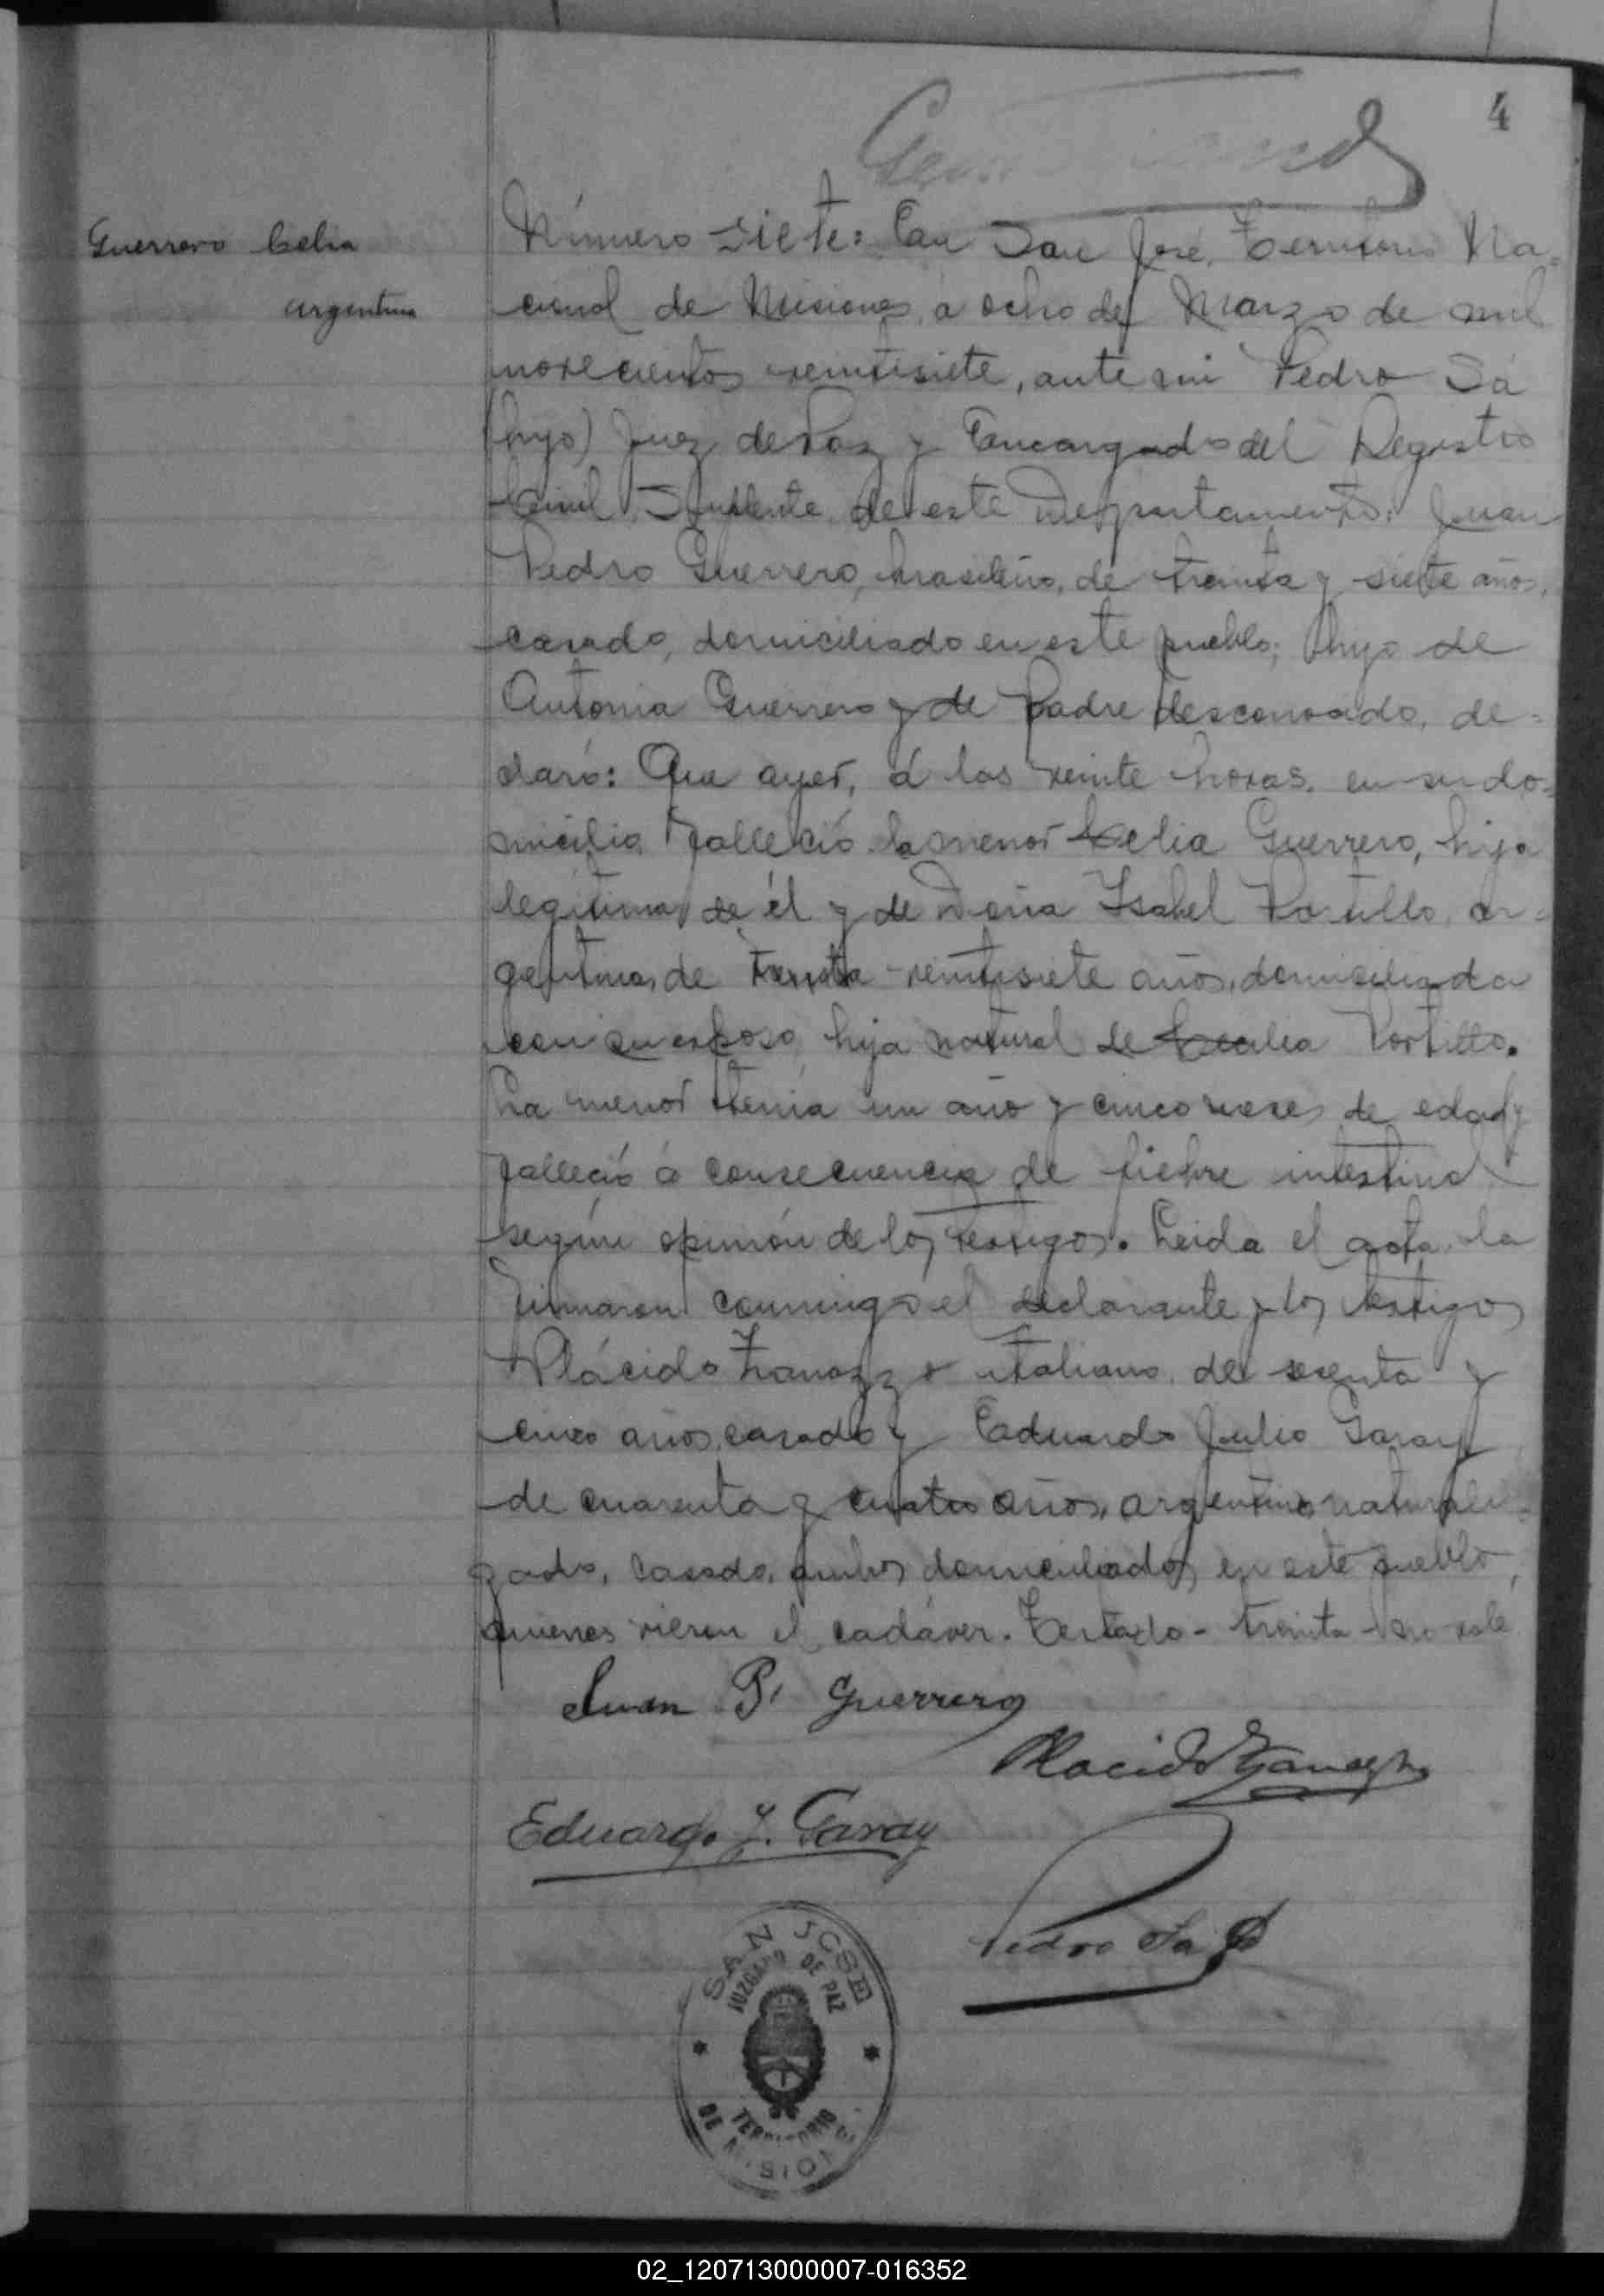 4
Guerrero Celia
argentina
Número siete: En San José, Territorio Na=
cional de Misiones, a ocho de Marzo de mil
novecientos veintisiete, ante mi Pedro Sá
(hijo) Juez de Paz y Encargado del Registro
Civil Suplente de este Departamento: Juan
Pedro Guerrero, brasileño, de treinta y siete años,
casado, domiciliado en este pueblo; hijo de
Antonia Guerrero y de padre desconocido, de=
claró: Que ayer, á las veinte horas, en su do=
micilio falleció la menor Celia Guerrero, hija
legítima de él y de Doña Isabel Portillo, ar=
gentina, de treinta - veintisiete años, domiciliada
con su esposo, hija natural de Portillo.
La menor tenia un año y cinco meses de edad y
falleció á consecuencia de fiebre intestinal
según opinión de los testigos. Leida el acta la
firmaron conmigo el declarante y los testigos
Plácido Zanazzo italiano, de sesenta y
cinco años, casado y Eduardo Julio Garay
de cuarenta y cuatro años, argentino naturali=
zado, casado, ambos domiciliados en este pueblo,
quienes vieron el cadáver. Testado - treinta - no vale
Juan P. Guerrero
Placido
Eduardo J. Garay
Pedro Sa
SAN JOSE
JUZGADO DE PAZ
TERRITORIO
DE MISIONES
02_120713000007-016352